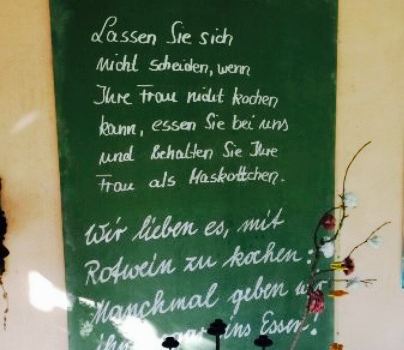 Lassen Sie sich
nicht scheiden, wenn
Ihre Frau nicht kochen
kann, essen Sie bei uns
und behalten Sie Ihre
Frau als Maskottchen.
Wir lieben es, mit
Rotwein zu kochen:
Manchmal geben wir
ins Essen!